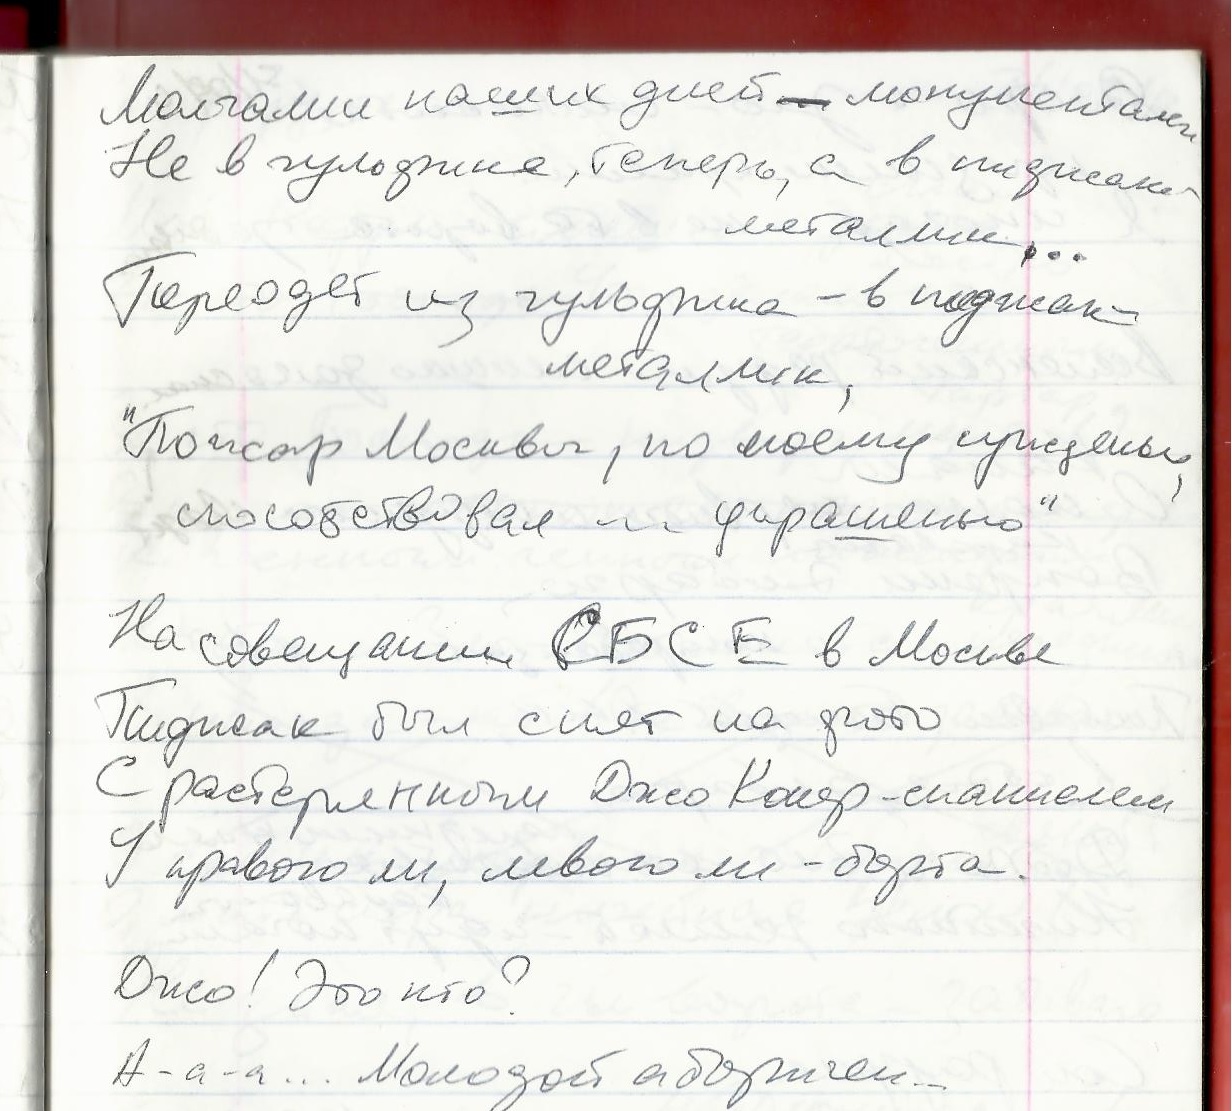 Молчалин наших дней — монументален
Не в чулочке, теперь, а в пиджаке
металлик,...
Переодет из — в пиджак
металлик,
"Пожар Москвы, по моему сужденью,
способствовал украшенью"
На совещании СБСЕ в Москве
Пиджак был снят на фото
С растерянным Джо Кокер-спаниелем
У правого ли, левого ли - борта.
Джо! Это кто?
А-а-а... Молодой аборигеи...